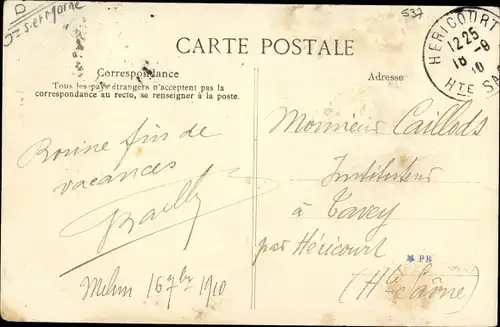 D
Sne et Marne
537
CARTE POSTALE
Correspondance
Tous les pays étrangers n'acceptent pas la
correspondance au recto, se renseigner à la poste.
Adresse
HERICOURT
12 25
18 -9
10
HTE SA
Bonne fin de
vacances
Bailly
Melun 16 7bre 1910
Monsieur Caillods
Instituteur
à Tavey
par Héricourt
PR
(Hte Saône)